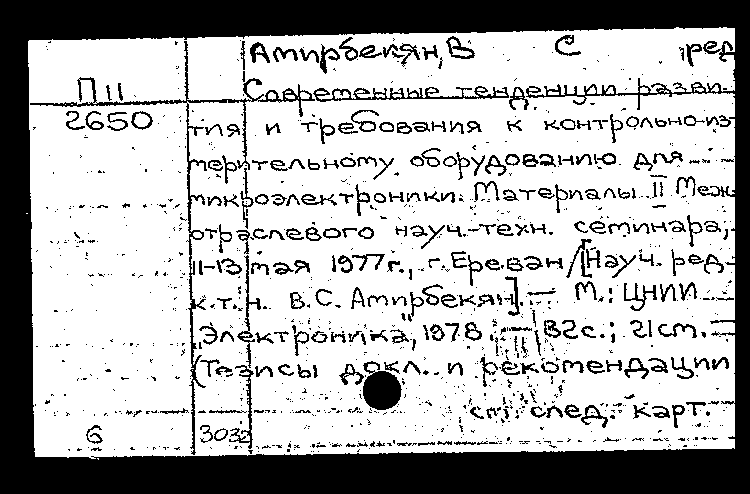 Амирбекян, В С ред
П II Современные тенденции разви-
2650 тия и требования к контрольно-из
мерительному оборудованию для
микроэлектроники. Материалы II Меж
отраслевого науч.-техн. семинара,
11-13 мая 1977г., г. Ереван/[Науч. ред.
к.т.н. В.С. Амирбекян]. — М.: ЦНИИ
"Электроника", 1978. — 82с.; 21см. —
(Тезисы докл. и рекомендации
см. след. карт.
6 3032